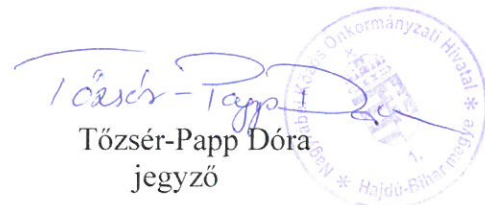 Tőzsér-Papp Dóra
Tőzsér-Papp Dóra
jegyző
Közös Önkormányzati Hivatal * Hajdú-Bihar megye *
1.